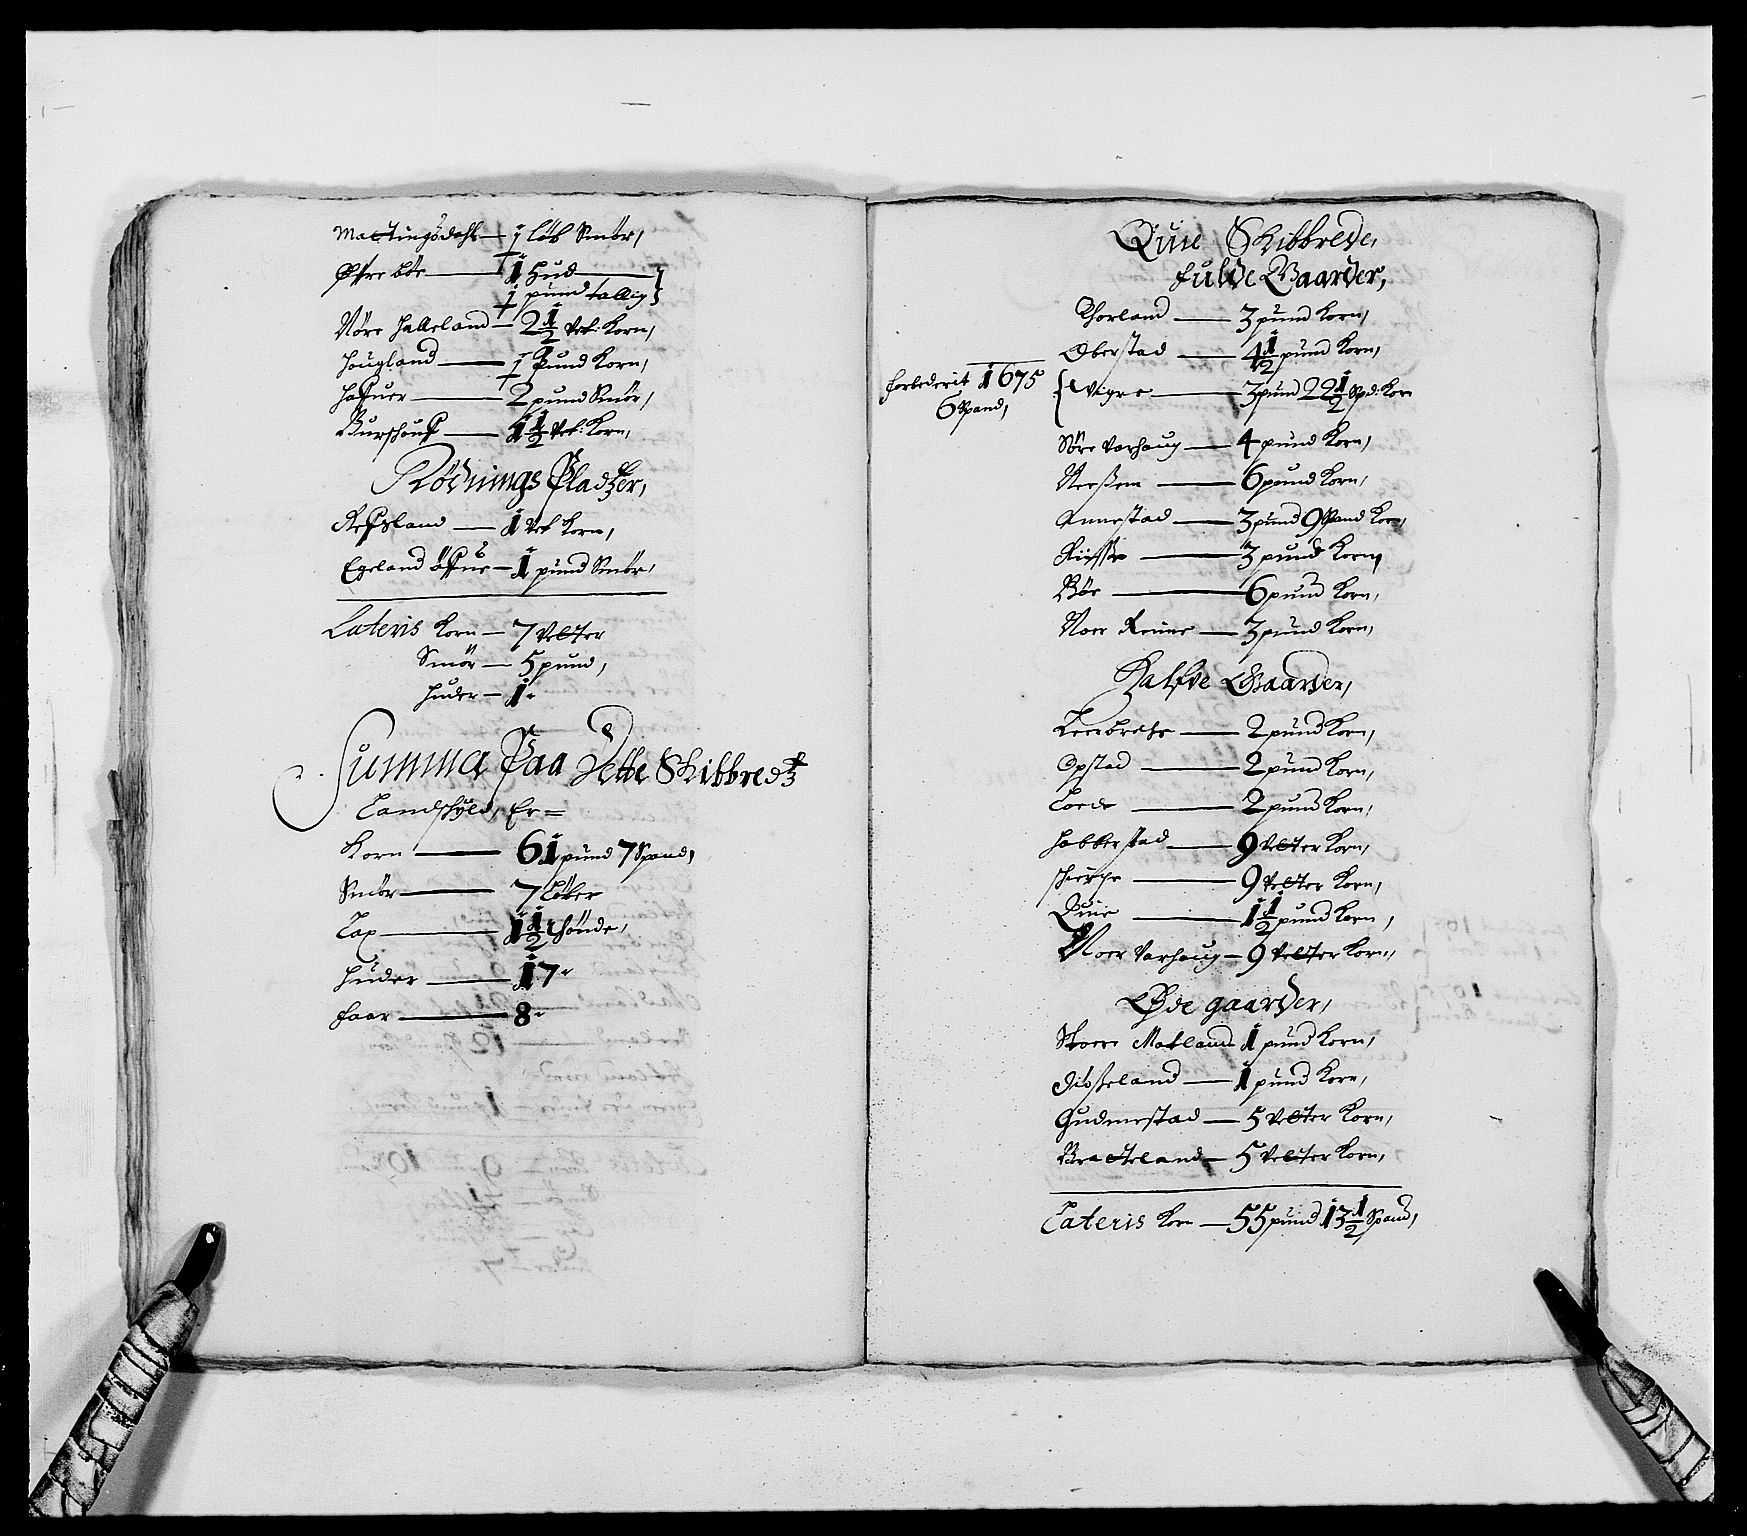 Mactingsdahl — 1 løb Smør,
Øfre bøe — 1 Hud
1 pund tallig
Nøre Halleland — 2 1/2 Vet: Korn,
Hougland — 1 Pund Korn,
Hafuer — 2 pund Smør,
1 1/2 Vet: Korn,
Rødnings Pladtzer,
Refsland — 1 Vet Korn,
Egeland øfue — 1 pund Smør,
Lateris Korn — 7 Vetter
Smør — 5 pund,
Huder — 1.
Summa Paa Dette Skibbredtz
Landschyld, Er =
Korn — 61 pund 7 Spand,
Smør — 7 Løber
Lax — 1 1/2 thønde,
Huder — 17.
Faar — 8.
Quie Skibbrede,
Fulde Gaarder,
Thorland — 3 pund Korn,
Oberstad — 4 1/2 pund Korn,
forlederit 1675
6 Spand,
Wigre — 3 pund 22 1/2 Spd: Korn
Søre Varhaug — 4 pund Korn,
Neeßem — 6 pund Korn,
Annestad — 3 pund 9 Spand Korn,
3 pund Korn,
Bøe — 6 pund Korn,
Noer Reime — 3 pund Korn,
Halfve Gaarder,
Leenbrete — 2 pund Korn,
Opstad — 2 pund Korn,
Loede — 2 pund Korn,
Habberstad — 9 Vetter Korn,
Schierpe — 9 Vetter Korn,
Quie — 1 1/2 pund Korn,
Noer Varhaug — 9 Vetter Korn,
Øde gaarder,
Stoere Matland 1 pund Korn,
Diußeland — 1 pund Korn,
Gudmestad — 5 Vetter Korn,
Bracteland — 5 Vetter Korn,
Lateris Korn — 55 pund 13 1/2 Spand,